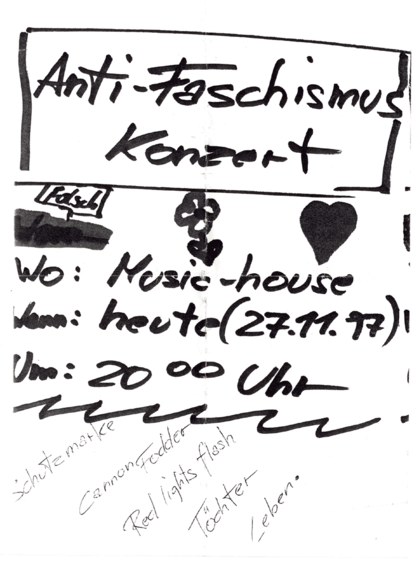 Anti-Faschismus
Konzert
Falsch
Wo: Music-house
Wann: heute (27.11.97)!
Um: 20 00 Uhr
Schutzmarke
Cannon Fodder
Red lights flash
Töchter
Leben.